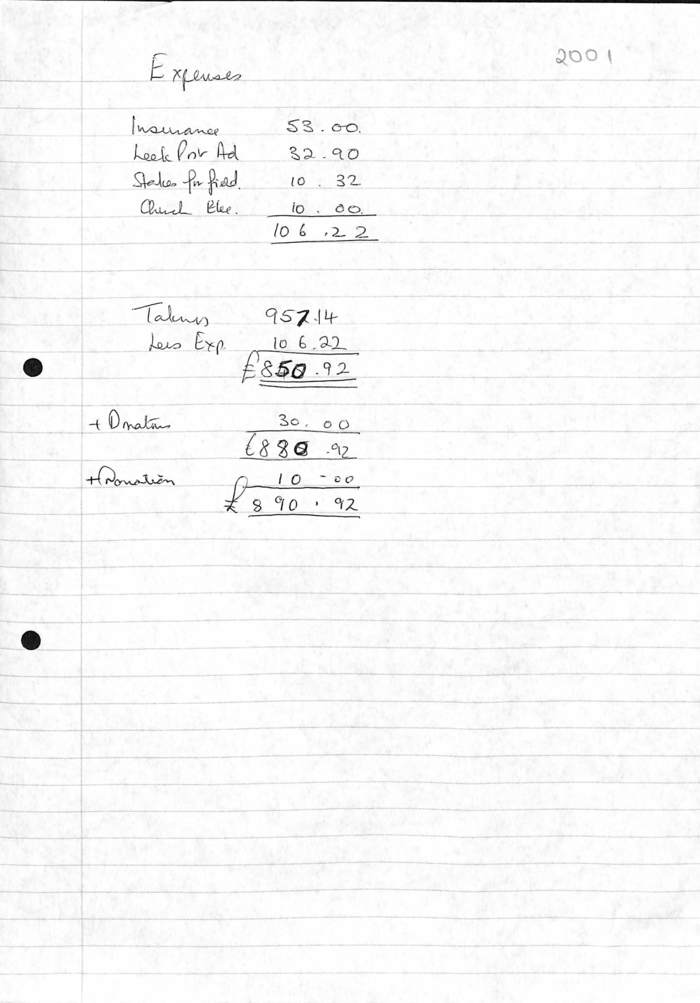 2001
Expenses
Insurance 53.00.
Leek Post Ad 32.90
Stakes for field. 10.32
Church Elec. 10.00
106.22
Takings 957.14
Less Exp. 106.22
£850.92
+ Donations 30.00
£880.92
+ Donation 10-00
£890.92